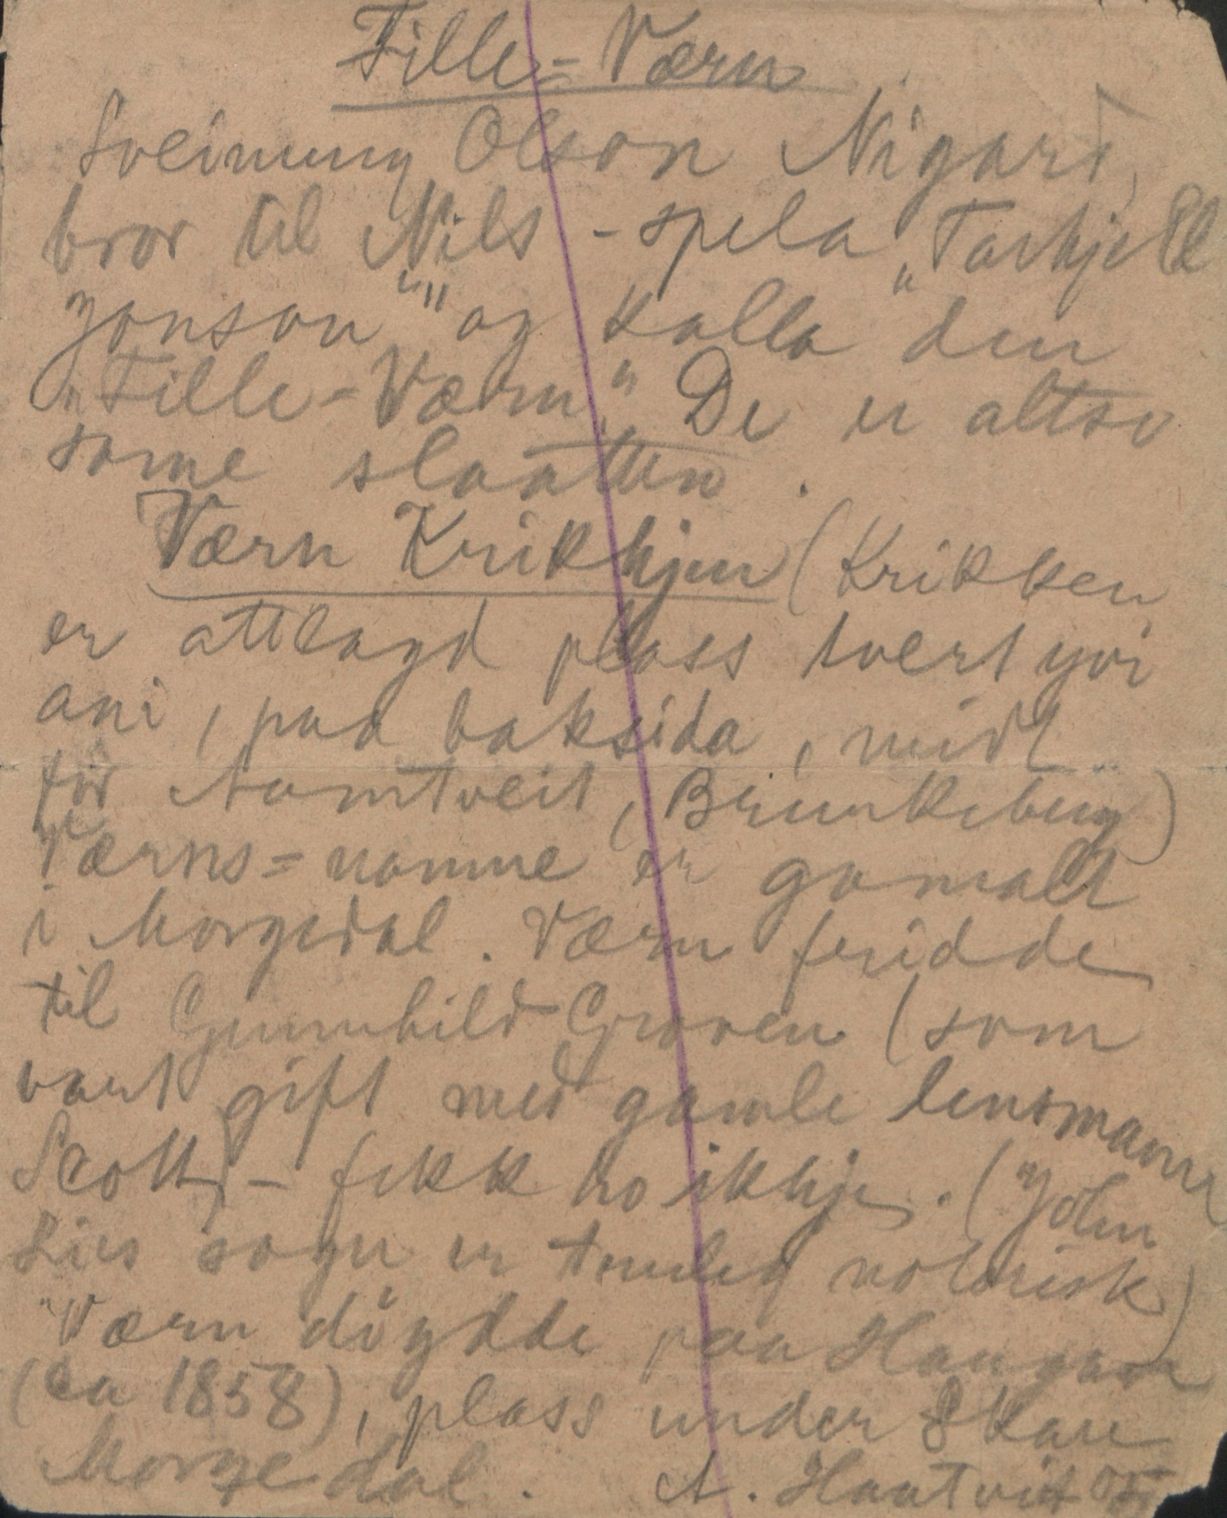 Fille-Værn
Sveinung Olson Nigard,
bror til Nils - spela "Tarkjell
Jonson" og kalla den
"Fille-Værn." De er altso
some slaatten.
Værn Krikkjen (Krikken
er attlagd plass tvert yvi
ani, paa baksida, midt
for Aamtveit, Brunkeberg)
Værns-namne er gamalt
i Morgedal. Værn fridde
til Gunnhild Groven (som
vart gift med gamle lensmann
Scott) - fekk ho ikkje. (John
Lies sogn er temleg notorisk)
Værn döydde paa Haugan
(ca 1858), plass under Skau
Morgedal. A. Haatveit